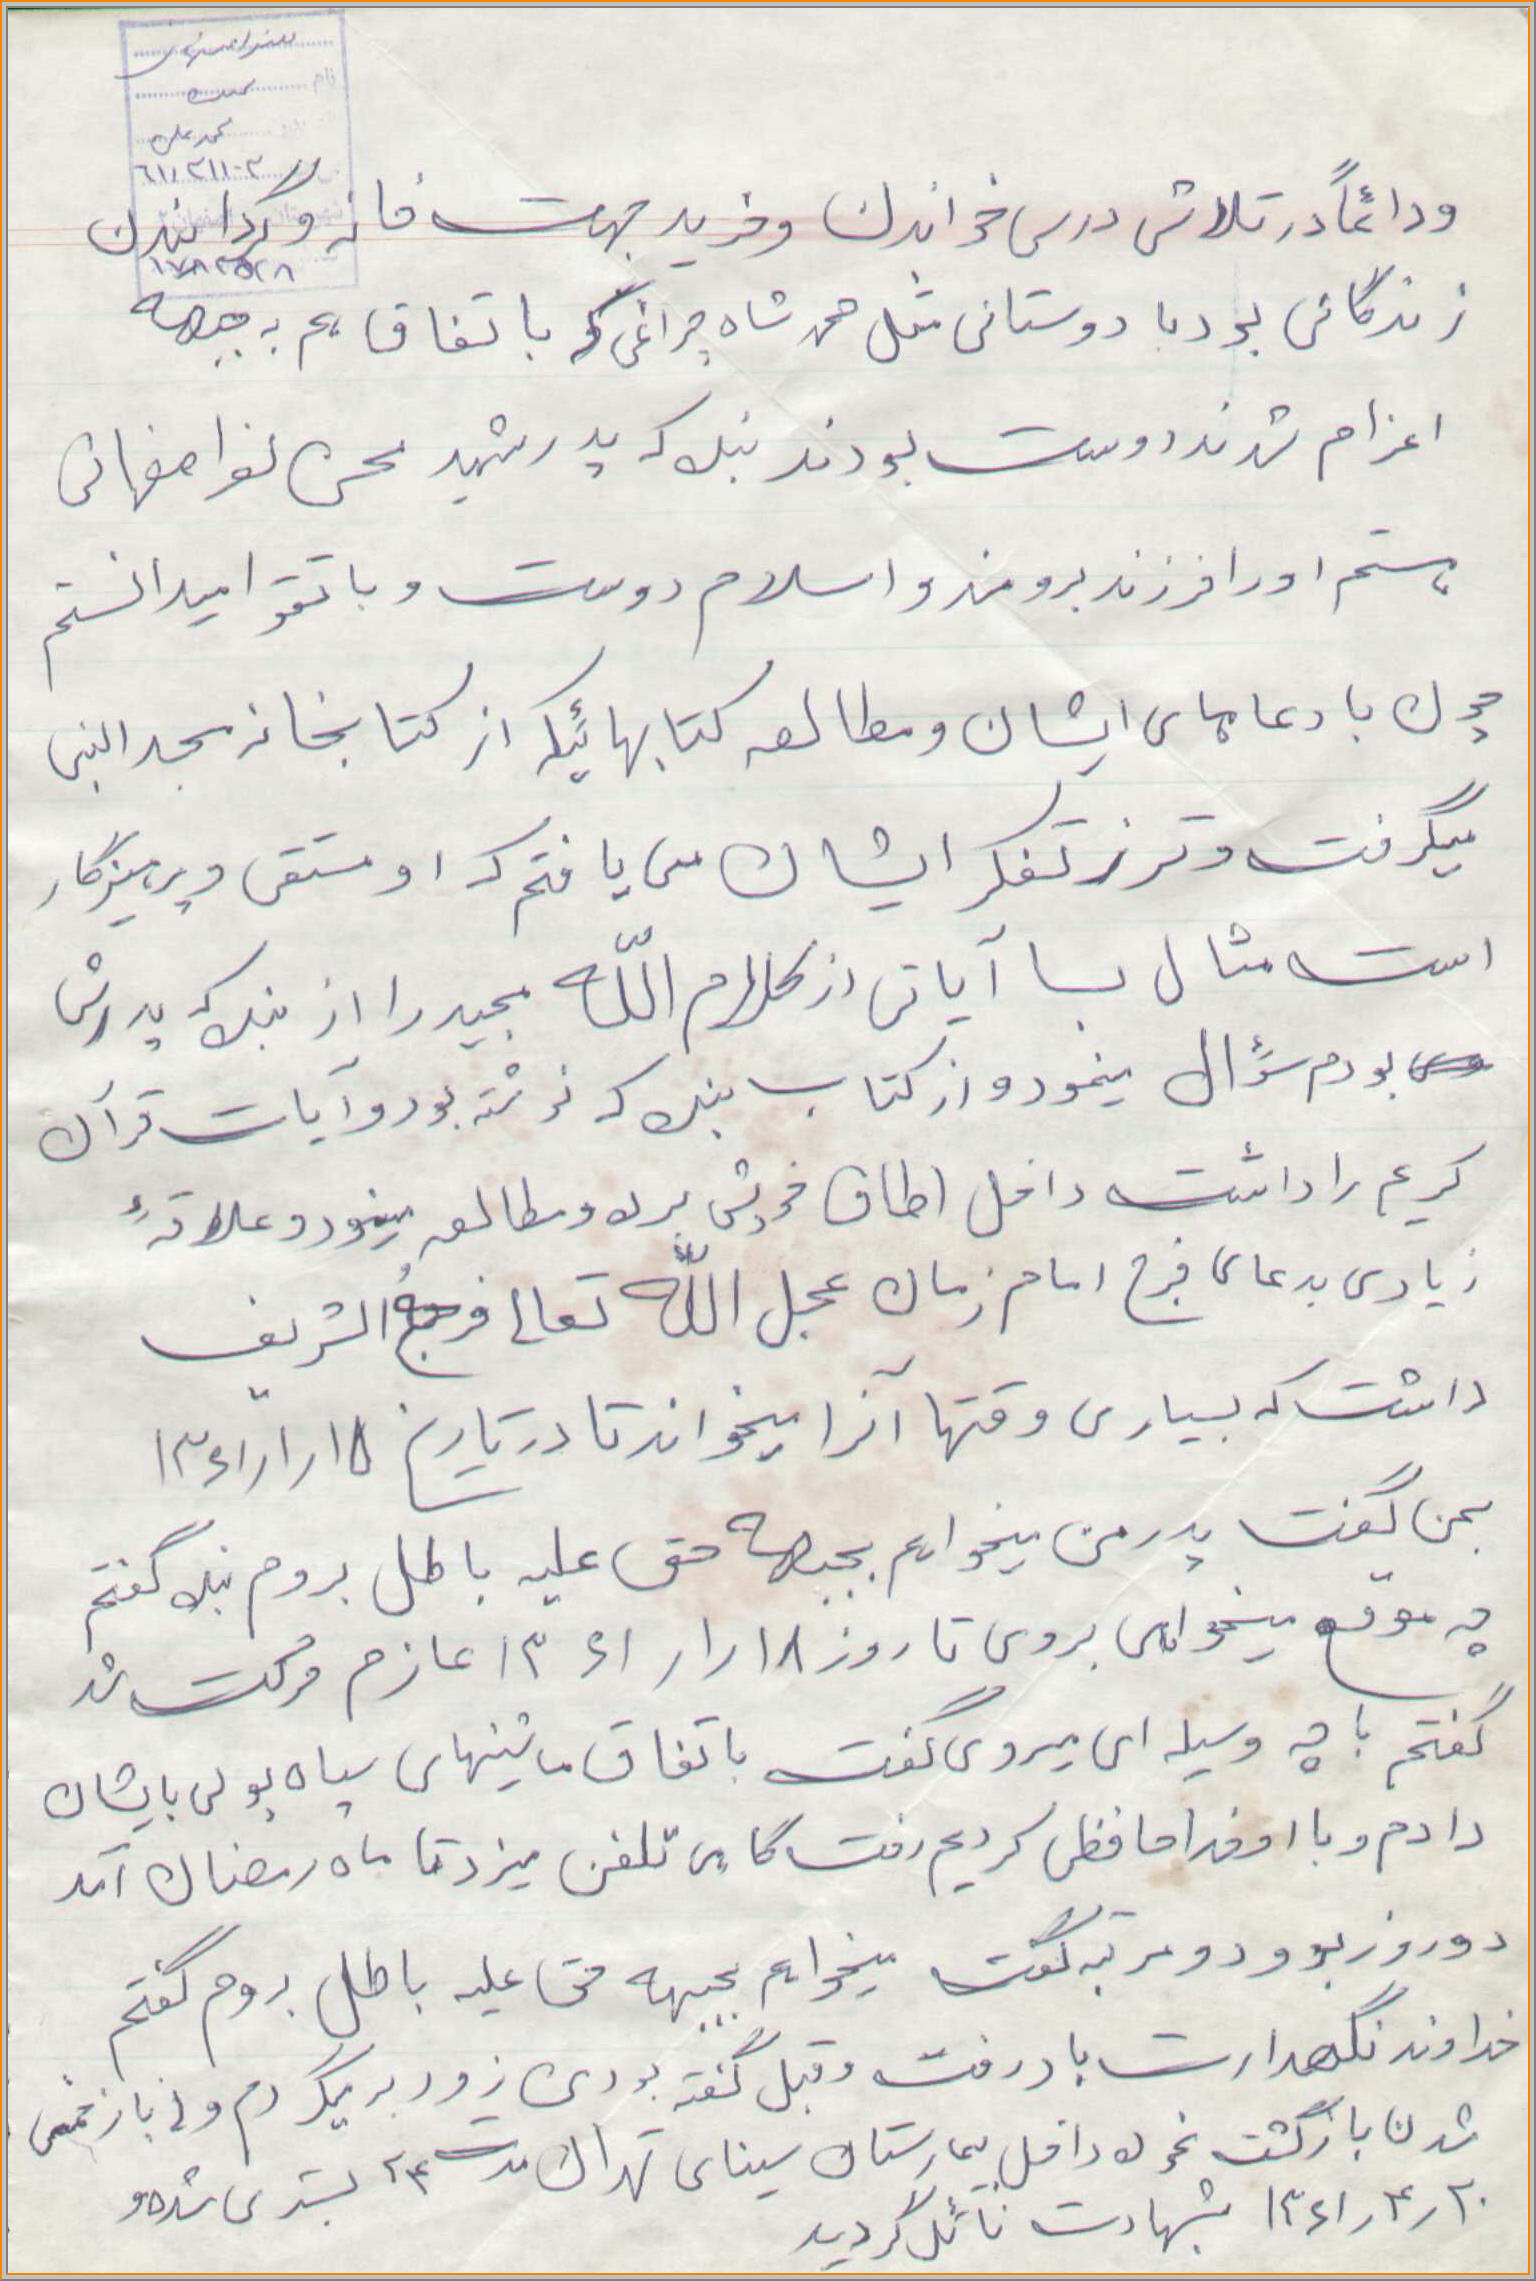 نام
محمد علی
۶۱/۳۱۱۰۲
۱۷۸۲۵۲۸
و دائماً در تلاش درس خواندن و خرید جهت خانه و گرداندن
زندگانی بود با دوستانی مثل شاه چراغی که باتفاق هم به جبهه
اعزام شدند دوست بودند بنده که پدر شهید محسن نصر اصفهانی
هستم او را فرزند برومند و اسلام دوست و با تقوا میدانستم
چون با دعاهای ایشان و مطالعه کتابهائیکه از کتابخانه مسجد النبی
میگرفت و ترز تفکر ایشان می یافتم که او متقی و پرهیزگار
است مثال بسا آیاتی از کلام اللّه مجید را از بنده که پدرش
بودم سؤال مینمود و از کتاب بنده که نوشته بود و آیات قرآن
کریم را داشت داخل اطاق خویش برده و مطالعه مینمود و علاقهٔ
زیادی بدعای فرج امام زمان عجل اللّه تعالی فرجهُ الشریف
داشت که بسیاری وقتها آنرا میخواند تا در تاریخ ۱۵ر۱ر۱۳۶۱
بمن گفت پدر من میخواهم بجبهه حق علیه باطل بروم بنده گفتم
چه موقع میخواهی بروی تا روز ۱۸ر۱ر۱۳۶۱ عازم حرکت شد
گفتم با چه وسیله ای میروی گفت باتفاق ماشینهای سپاه پولی بایشان
دادم و با او خداحافظی کردیم رفت گاهی تلفن میزد تا ماه رمضان آمد
دو روز بود دو مرتبه گفت میخواهم بجبهه حق علیه باطل بروم گفتم
خداوند نگهدارت باد رفت و قبل گفته بودی زود برمیگردم ولی با زخمی
شدن بازگشت نمود داخل بیمارستان سینای تهران مدت ۲۴ بستری شده و
۲۰ر۴ر۱۳۶۱ بشهادت نائل گردید